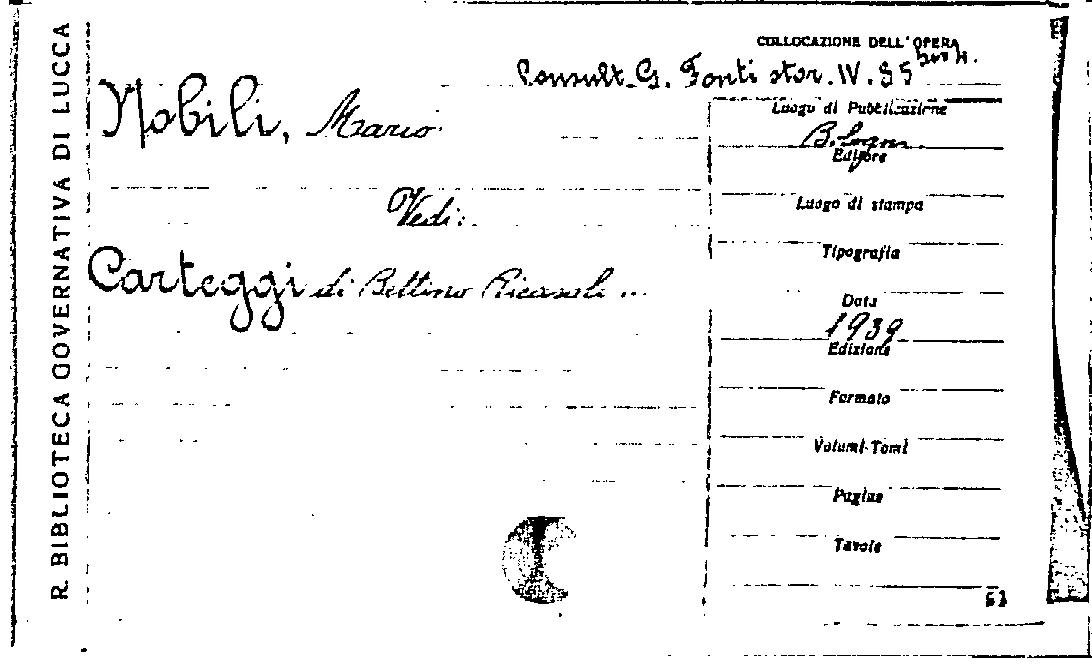 R. BIBLIOTECA GOVERNATIVA DI LUCCA
COLLOCAZIONE DELL'OPERA
Consult. G. Fonti stor. IV. 85
Nobili, Mario
Vedi:
Carteggi di Bettino Ricasoli ...
Luogo di Pubblicazione
Bologna
Editore
Luogo di stampa
Tipografia
Data
1939
Edizione
Formato
Volumi-Tomi
Pagine
Tavole